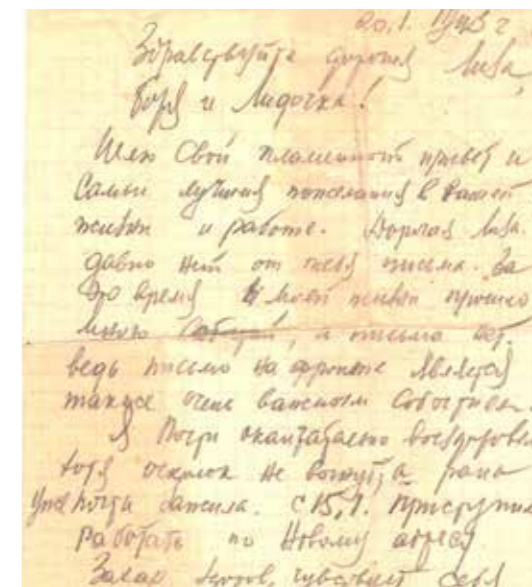 20.1. 1943 г
Здравствуйте дорогая Лиза,
Боря и Лидочка!
Шлю Свой пламенный привет и
Самые лучшие пожелания в вашей
жизни и работе. Дорогая Лиза.
давно нет от тебя письма. За
это время в моей жизни прошло
много событий, а письма нет.
ведь письмо на фронте является
также очень важным Событием
Я Почти окончательно выздоровел
хотя осколок не вынут, а рана
уже почти зажила. С 15.1. приступил
работать по Новому адресу
Захар здоров, чувствует себя